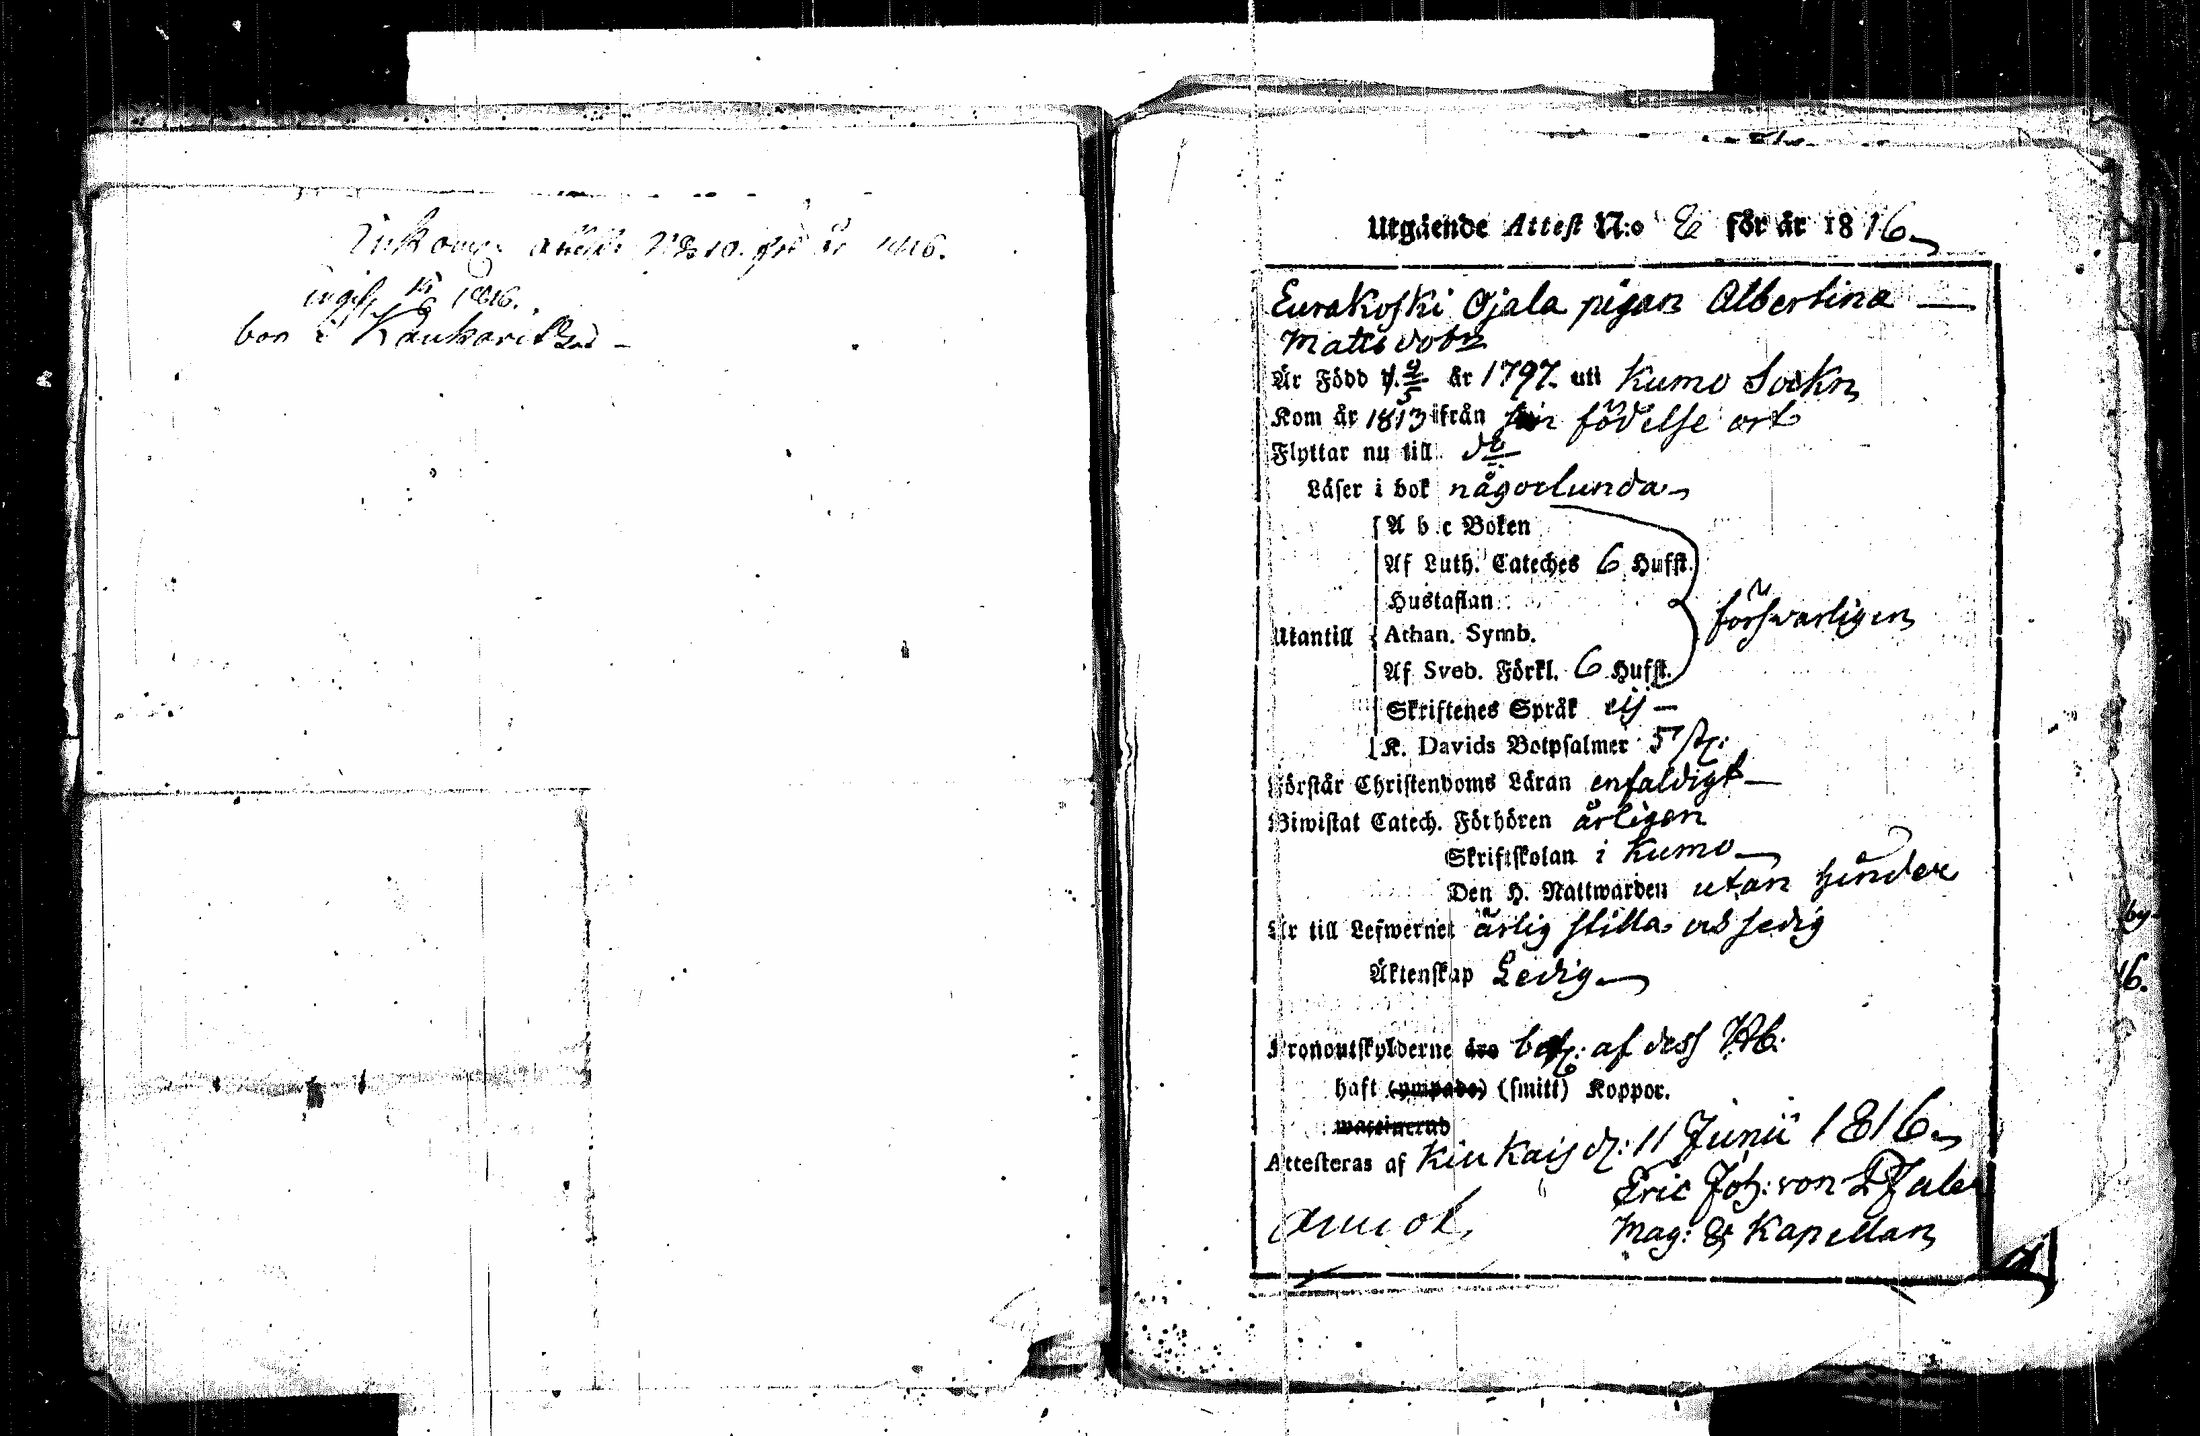 Inkom. attest N:o 10. för år 1816.
1816.
bor i Kaukari
Utgående Attest N:o för år 1816
Eurakoski Ojala pigan Albertina
Matts dotr
Är Född d. 9/5 år 1797. uti Kumo Sockn
Kom år 1813 ifrån sin födelse ort
Flyttar nu till do
Läser i bok någorlunda
A b c Boken
Af Luth. Cateches 6 Hufst.
Hustaflan
Utantill Athan. Symb. försvarligen
Af Sveb. Förkl. 6 Hufst.
Skriftenes Språk eij
K. Davids Botpsalmer 5 st:
Förstår Christendoms Läran enfaldigt
Biwistat Catech. Förhören årligen
Skriftskolan i Kumo
Den H. Nattwarden utan hinder
Är till Lefwernet ärlig stilla och sedig
Äktenskap Ledig
Kronoutskylderne äro bet: af dess
haft (ympade) (smitt) Koppor.
waccinerad
Attesteras af Kiukais d: 11 Junii 1816
Eric Joh: von
Mag: & Kapellan
by
16.